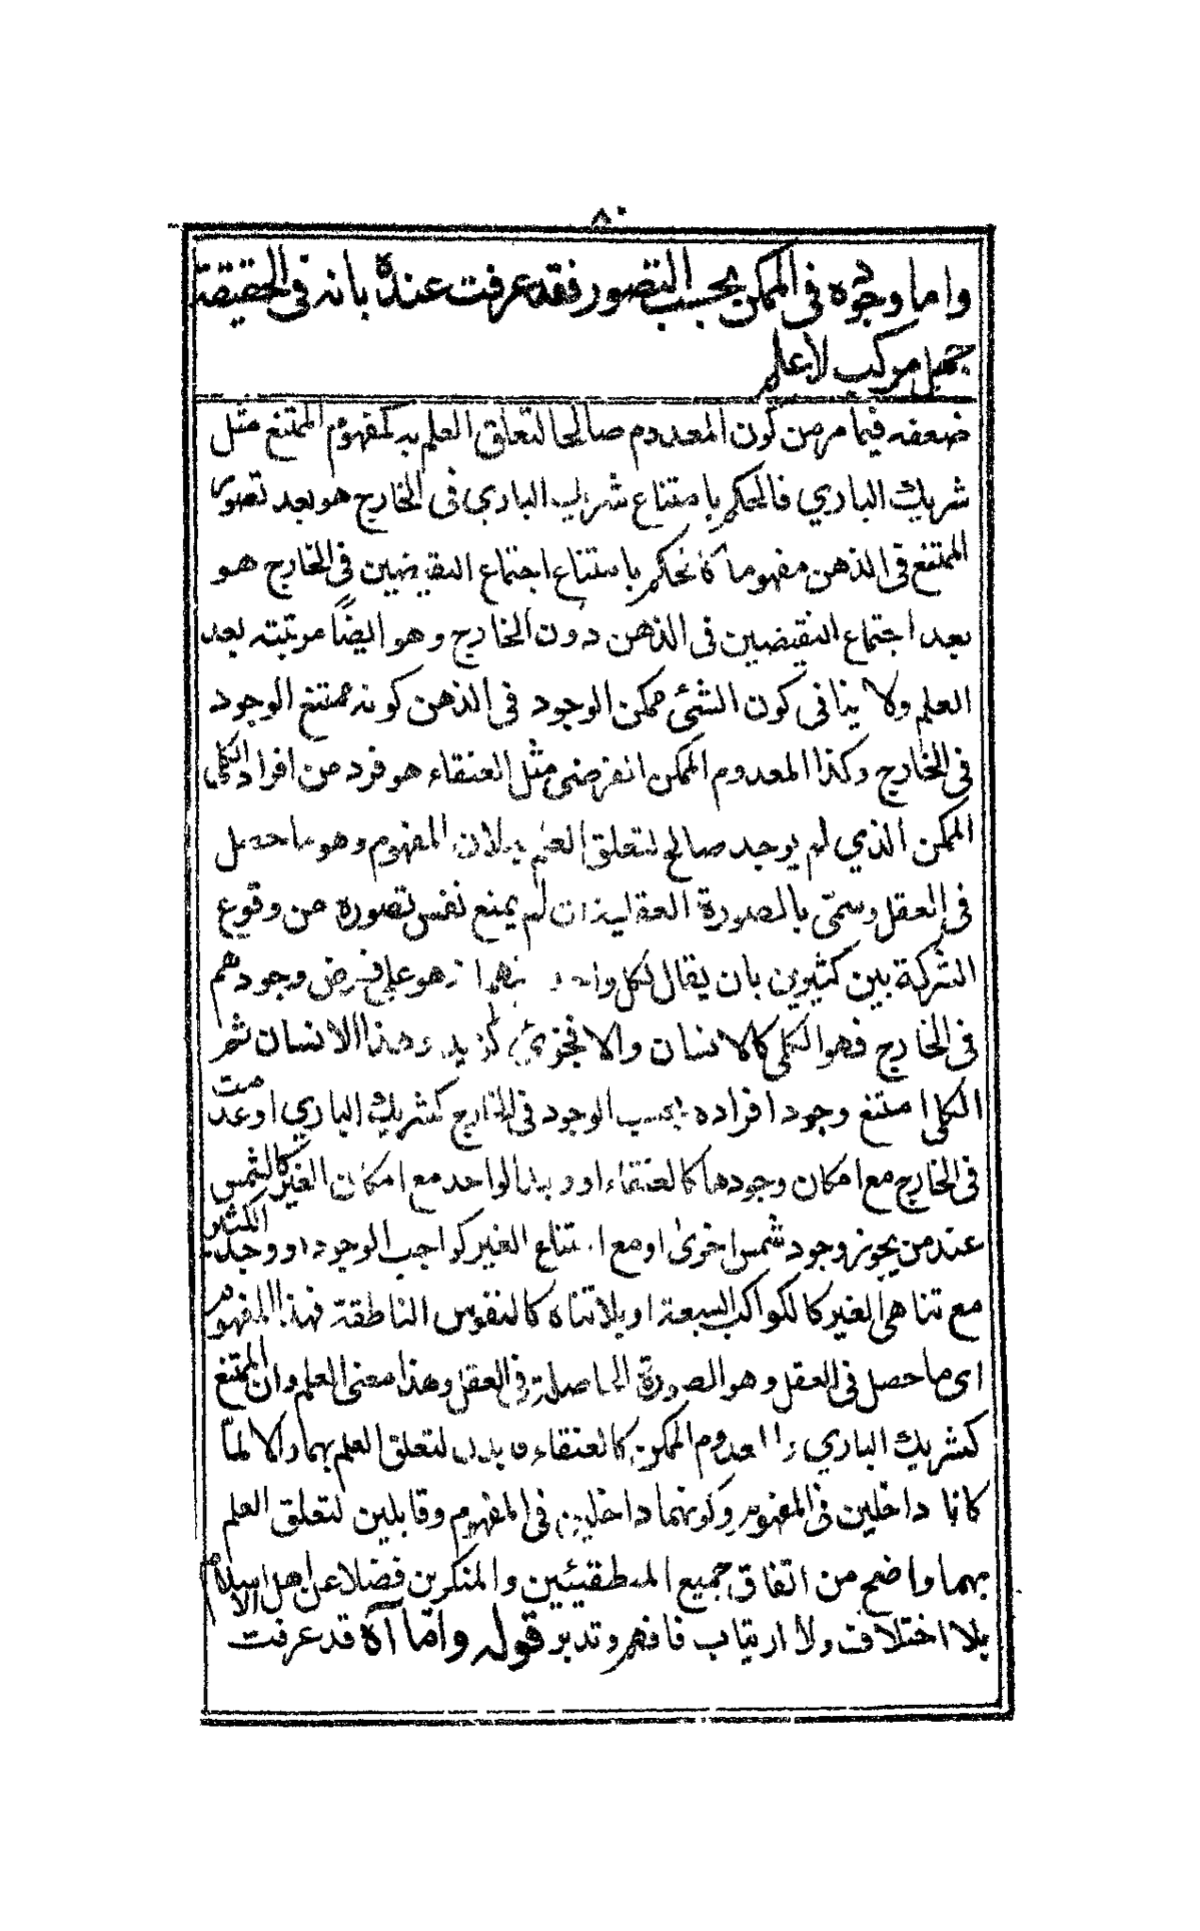 ٨٠
واما وجوده فى الممكن بحسب التصور فقد عرفت عنده بانه فى الحقيقة
جهل مركب لا علم
ضعفه فيما مر من كون المعدوم صالحا لتعلق العلم به كمفهوم الممتنع مثل
شريك الباري فالحكم بامتناع شريك الباري فى الخارج هو بعد تصور
الممتنع فى الذهن مفهوما كا نحكم بامتناع اجتماع النقيضين فى الخارج هو
بعد اجتماع النقيضين فى الذهن دون الخارج وهو ايضًا مرتبته بعد
العلم ولا ينافى كون الشئ ممكن الوجود فى الذهن كونه ممتنع الوجود
فى الخارج وكذا المعدوم الممكن الفرضى مثل العنقاء هو فرد من افراد الكلى
الممكن الذي لم يوجد صالح لتعلق العلم به لان المفهوم وهو ما حصل
فى العقل وسمّى بالصورة العقلية ان لم يمنع نفس تصوره من وقوع
الشركة بين كثيرين بان يقال لكل واحد منهم انه هو على فرض وجودهم
فى الخارج فهو الكلى كالانسان والا فجزئي كزيد وهذا الانسان ثم
الكلى امتنع وجود افراده بحسب الوجود فى الخارج كشريك الباري او عدمت
فى الخارج مع امكان وجودها كالعنقاء او وجد الواحد مع امكان الغير كالشمس
عند من يجوز وجود شمس اخرىٰ او مع امتناع الغير كواجب الوجود او وجد الكثير
مع تناهى الغير كالكواكب السبعة او بلا تناه كالنفوس الناطقة فهذا المفهوم
اى ما حصل فى العقل وهو الصورة الحاصلة فى العقل وهذا معنى العلم وان الممتنع
كشريك الباري والمعدوم الممكن كالعنقاء قابلان لتعلق العلم بهما والا لمّا
كانا داخلين فى المفهوم وكونهما داخلين فى المفهوم وقابلين لتعلق العلم
بهما واضح من اتفاق جميع المنطقيئين والمنكرين فضلا عن اهل الاسلام
بلا اختلاف ولا ارتياب فافهم وتدبر قوله وامّا آه قد عرفت